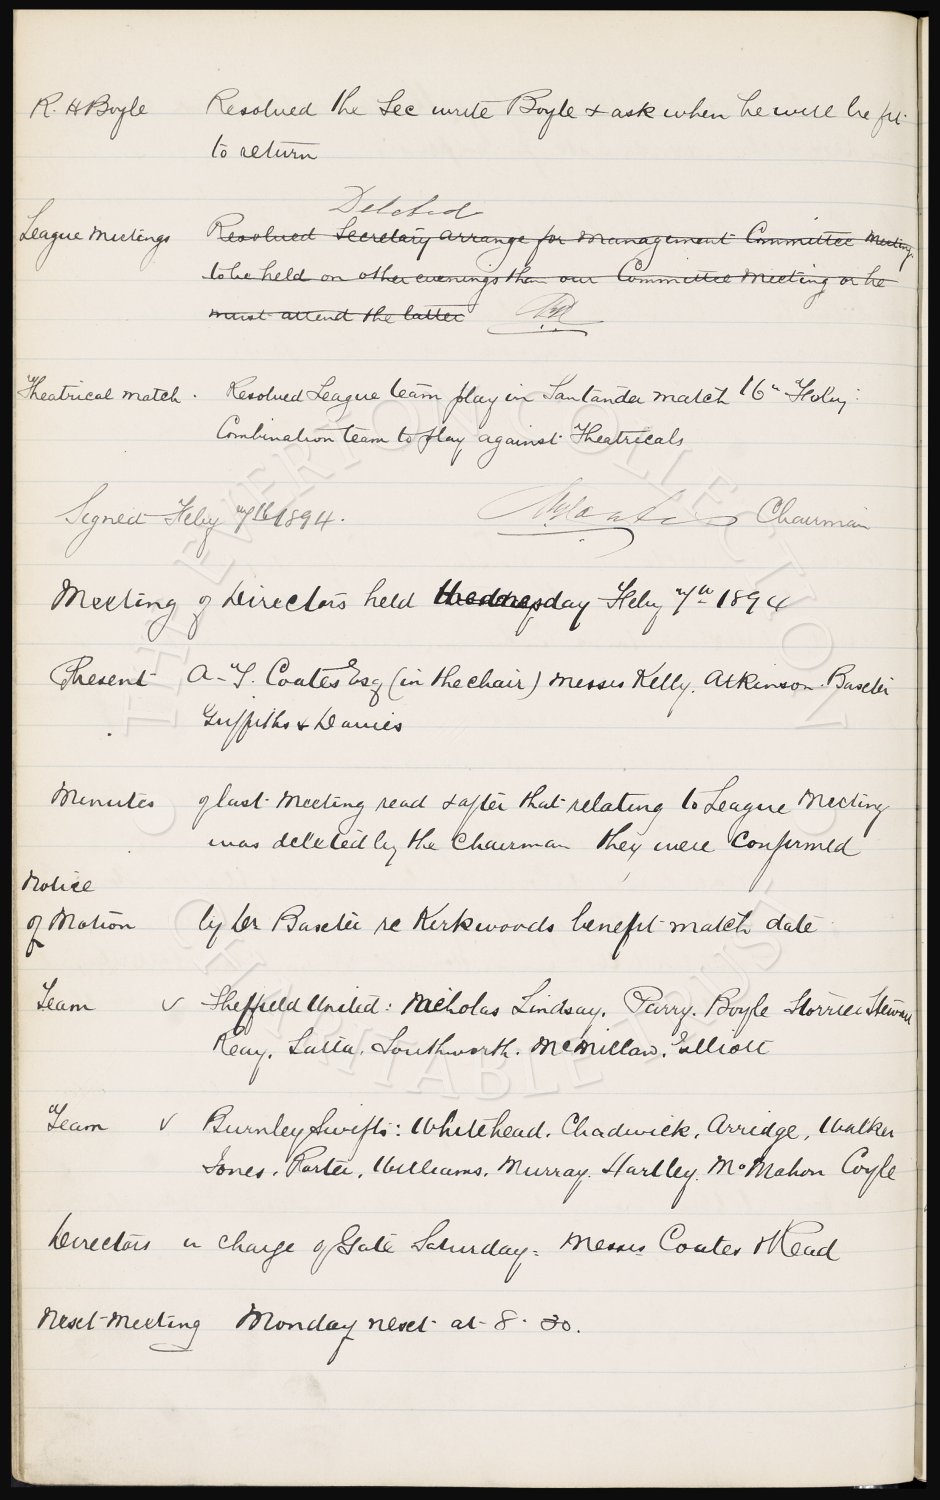 R. H Boyle Resolved the Sec write Boyle & ask when he will be fit
to return
Deleted
League Meetings Resolved Secretary arrange for Management Committee Meetings
to be held on other evenings than our Committee Meeting or he
must attend the latter
Theatrical match. Resolved League team play in Santander match 16th Feby:
Combination team to play against Theatricals
Signed Feby 1894. Chairman
Meeting of Directors held Wednesday Feby 7th 1894
Present A. T. Coates Esq (in the chair) Messrs Kelly. Atkinson. Baxter
Griffiths & Davies
Minutes of last Meeting read & after that relating to League Meeting
was deleted by the Chairman they were confirmed
Notice
of Motion by Dr Baxter re Kirkwoods benefit match date
Team v Sheffield United: Nicholas Lindsay. Parry. Boyle Storrier Stewart
Reay. Latta. Southworth. McMillan. Elliott
Team v Burnley Swifts: Whitehead. Chadwick. Arridge, Walker
Jones. Porter. Williams. Murray. Hartley. McMahon Coyle
Directors in charge of Gate Saturday: Messrs Coates & Read
Next Meeting Monday next at 8.30.
THE EVERTON COLLECTION
CHARITABLE TRUST